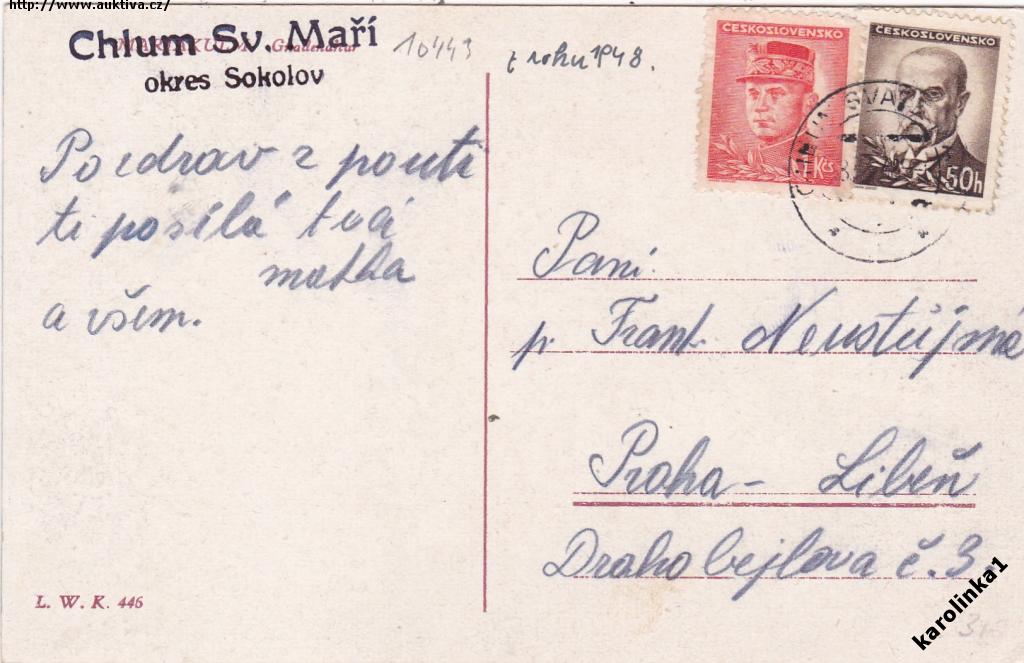 http://www.auktiva.cz/
Chlum Sv. Maří
okres Sokolov
10443
z roku 1948.
ČESKOSLOVENSKO
1 Kčs
ČESKOSLOVENSKO
50h
Pozdrav z pouti
ti posílá tvá
matka
a všem.
Paní
p. Frant. Neustůjmá
Praha - Libeň
Drahobejlova č. 3.
L. W. K. 446
karolinka1